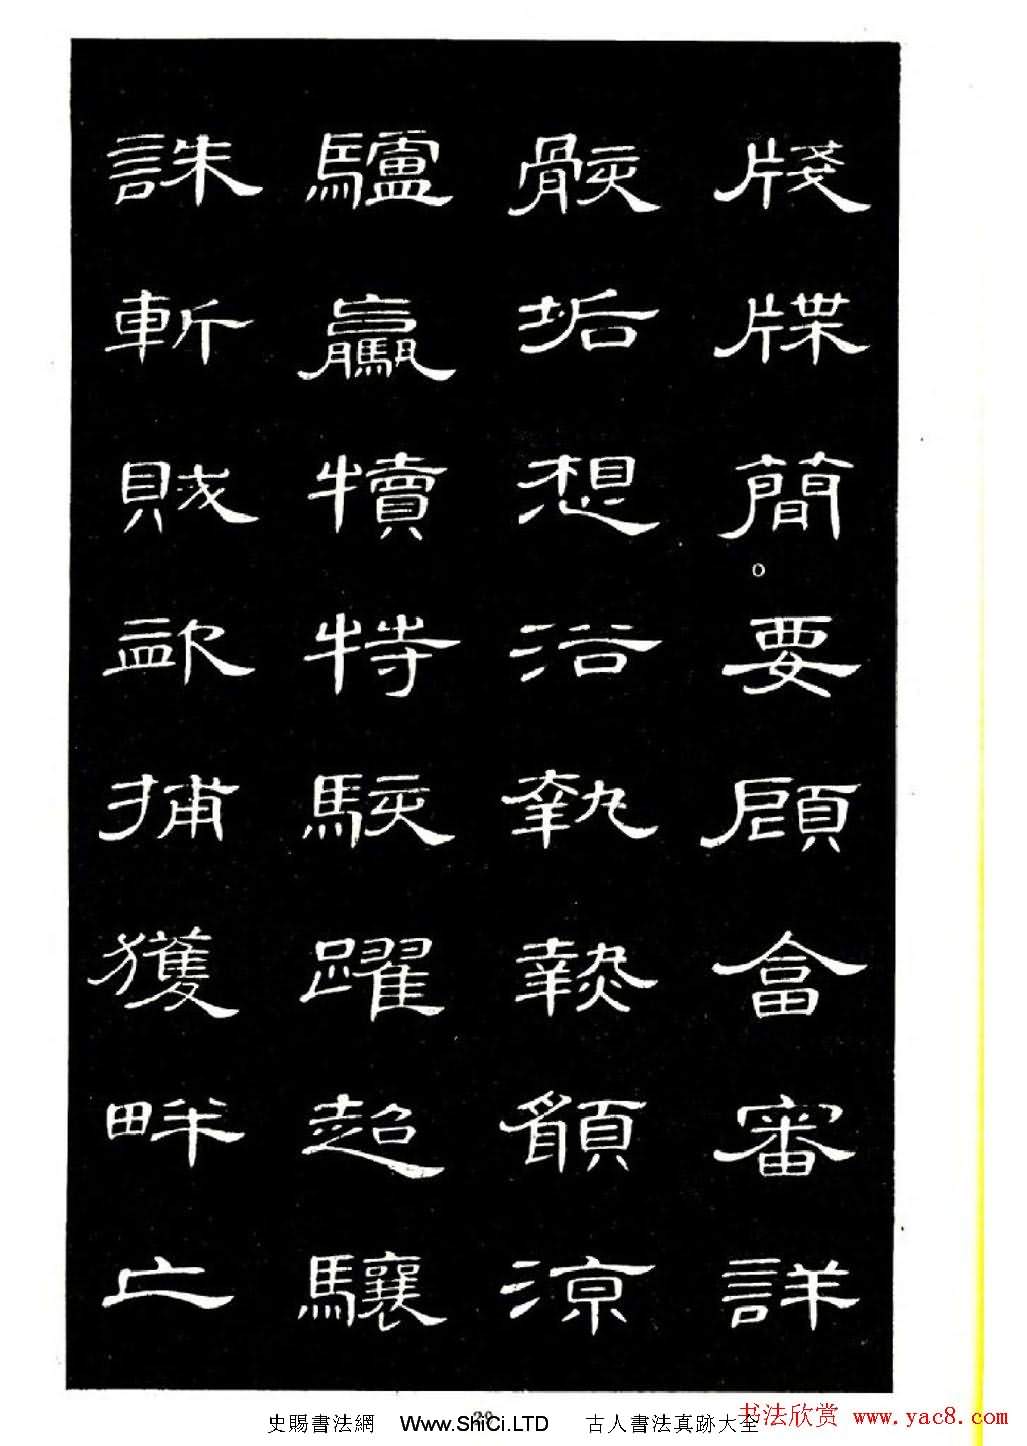 牋牒簡。要顧畣審詳
骸垢想浴執熱願涼
驢驘犢特駭躍超驤
誅斬賊盜捕獲畔亡
史賜書法網 Www.ShiCi.LTD 古人書法真跡大全
书法欣赏 www.yac8.com